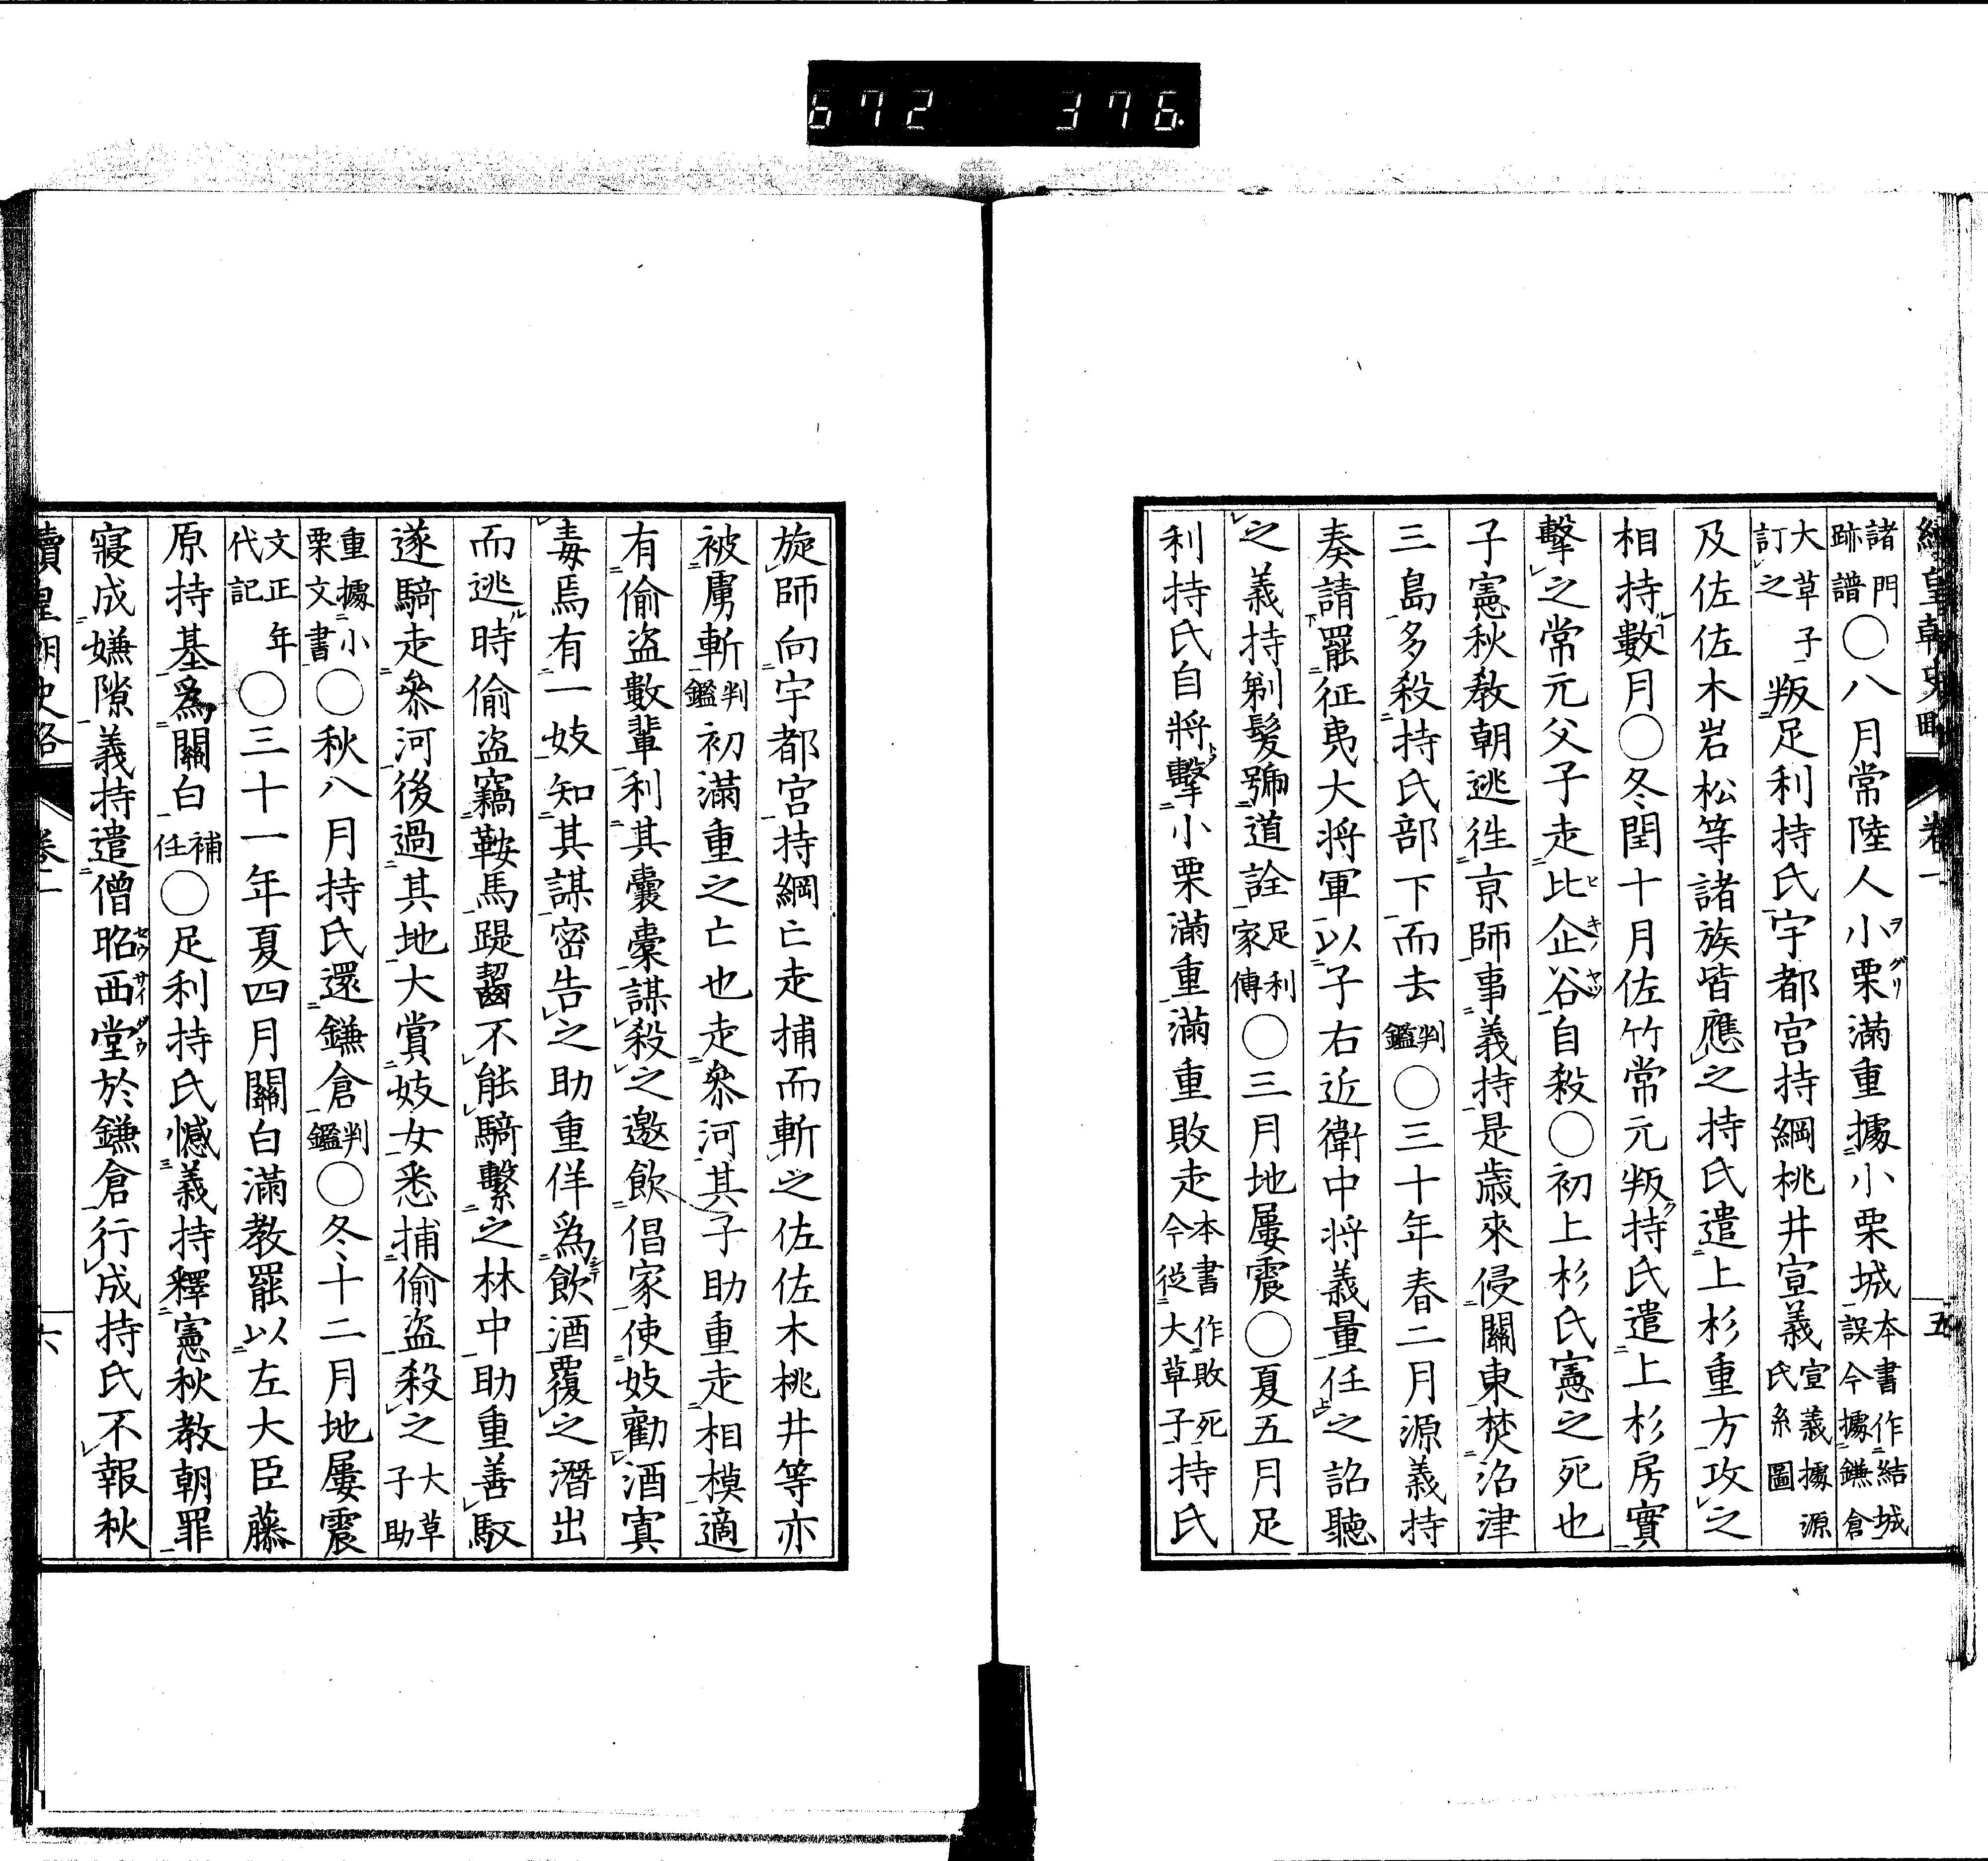 672 376.
續皇朝史略 卷一 五
諸門跡譜〇八月常陸人小栗滿重據小栗城本書作結城誤今據鎌倉
大草子訂之叛足利持氏宇都宮持綱桃井宣義宣義據源氏系圖
及佐佐木岩松等諸族皆應之持氏遣上杉重方攻之
相持數月〇冬閏十月佐竹常元叛持氏遣上杉房實
擊之常元父子走比企谷自殺〇初上杉氏憲之死也
子憲秋教朝逃往京師事義持是歲來侵關東焚沼津
三島多殺持氏部下而去判鑑〇三十年春二月源義持
奏請罷征夷大將軍以子右近衛中將義量任之詔聽
之義持剃髮號道詮足利家傳〇三月地屢震〇夏五月足
利持氏自將擊小栗滿重滿重敗走本書作敗死今從大草子持氏
旋師向宇都宮持綱亡走捕而斬之佐佐木桃井等亦
被虜斬判鑑初滿重之亡也走參河其子助重走相模適
有偷盜數輩利其囊橐謀殺之邀飲倡家使妓勸酒寘
毒焉有一妓知其謀密告之助重佯爲飲酒覆之潛出
而逃時偷盜竊鞍馬踶齧不能騎繫之林中助重善馭
遂騎走參河後過其地大賞妓女悉捕偷盜殺之大草子助
重據小栗文書〇秋八月持氏還鎌倉判鑑〇冬十二月地屢震
文正年代記〇三十一年夏四月關白滿教罷以左大臣藤
原持基爲關白補任〇足利持氏憾義持釋憲秋教朝罪
寢成嫌隙義持遣僧昭西堂於鎌倉行成持氏不報秋
續皇朝史略 卷一 六